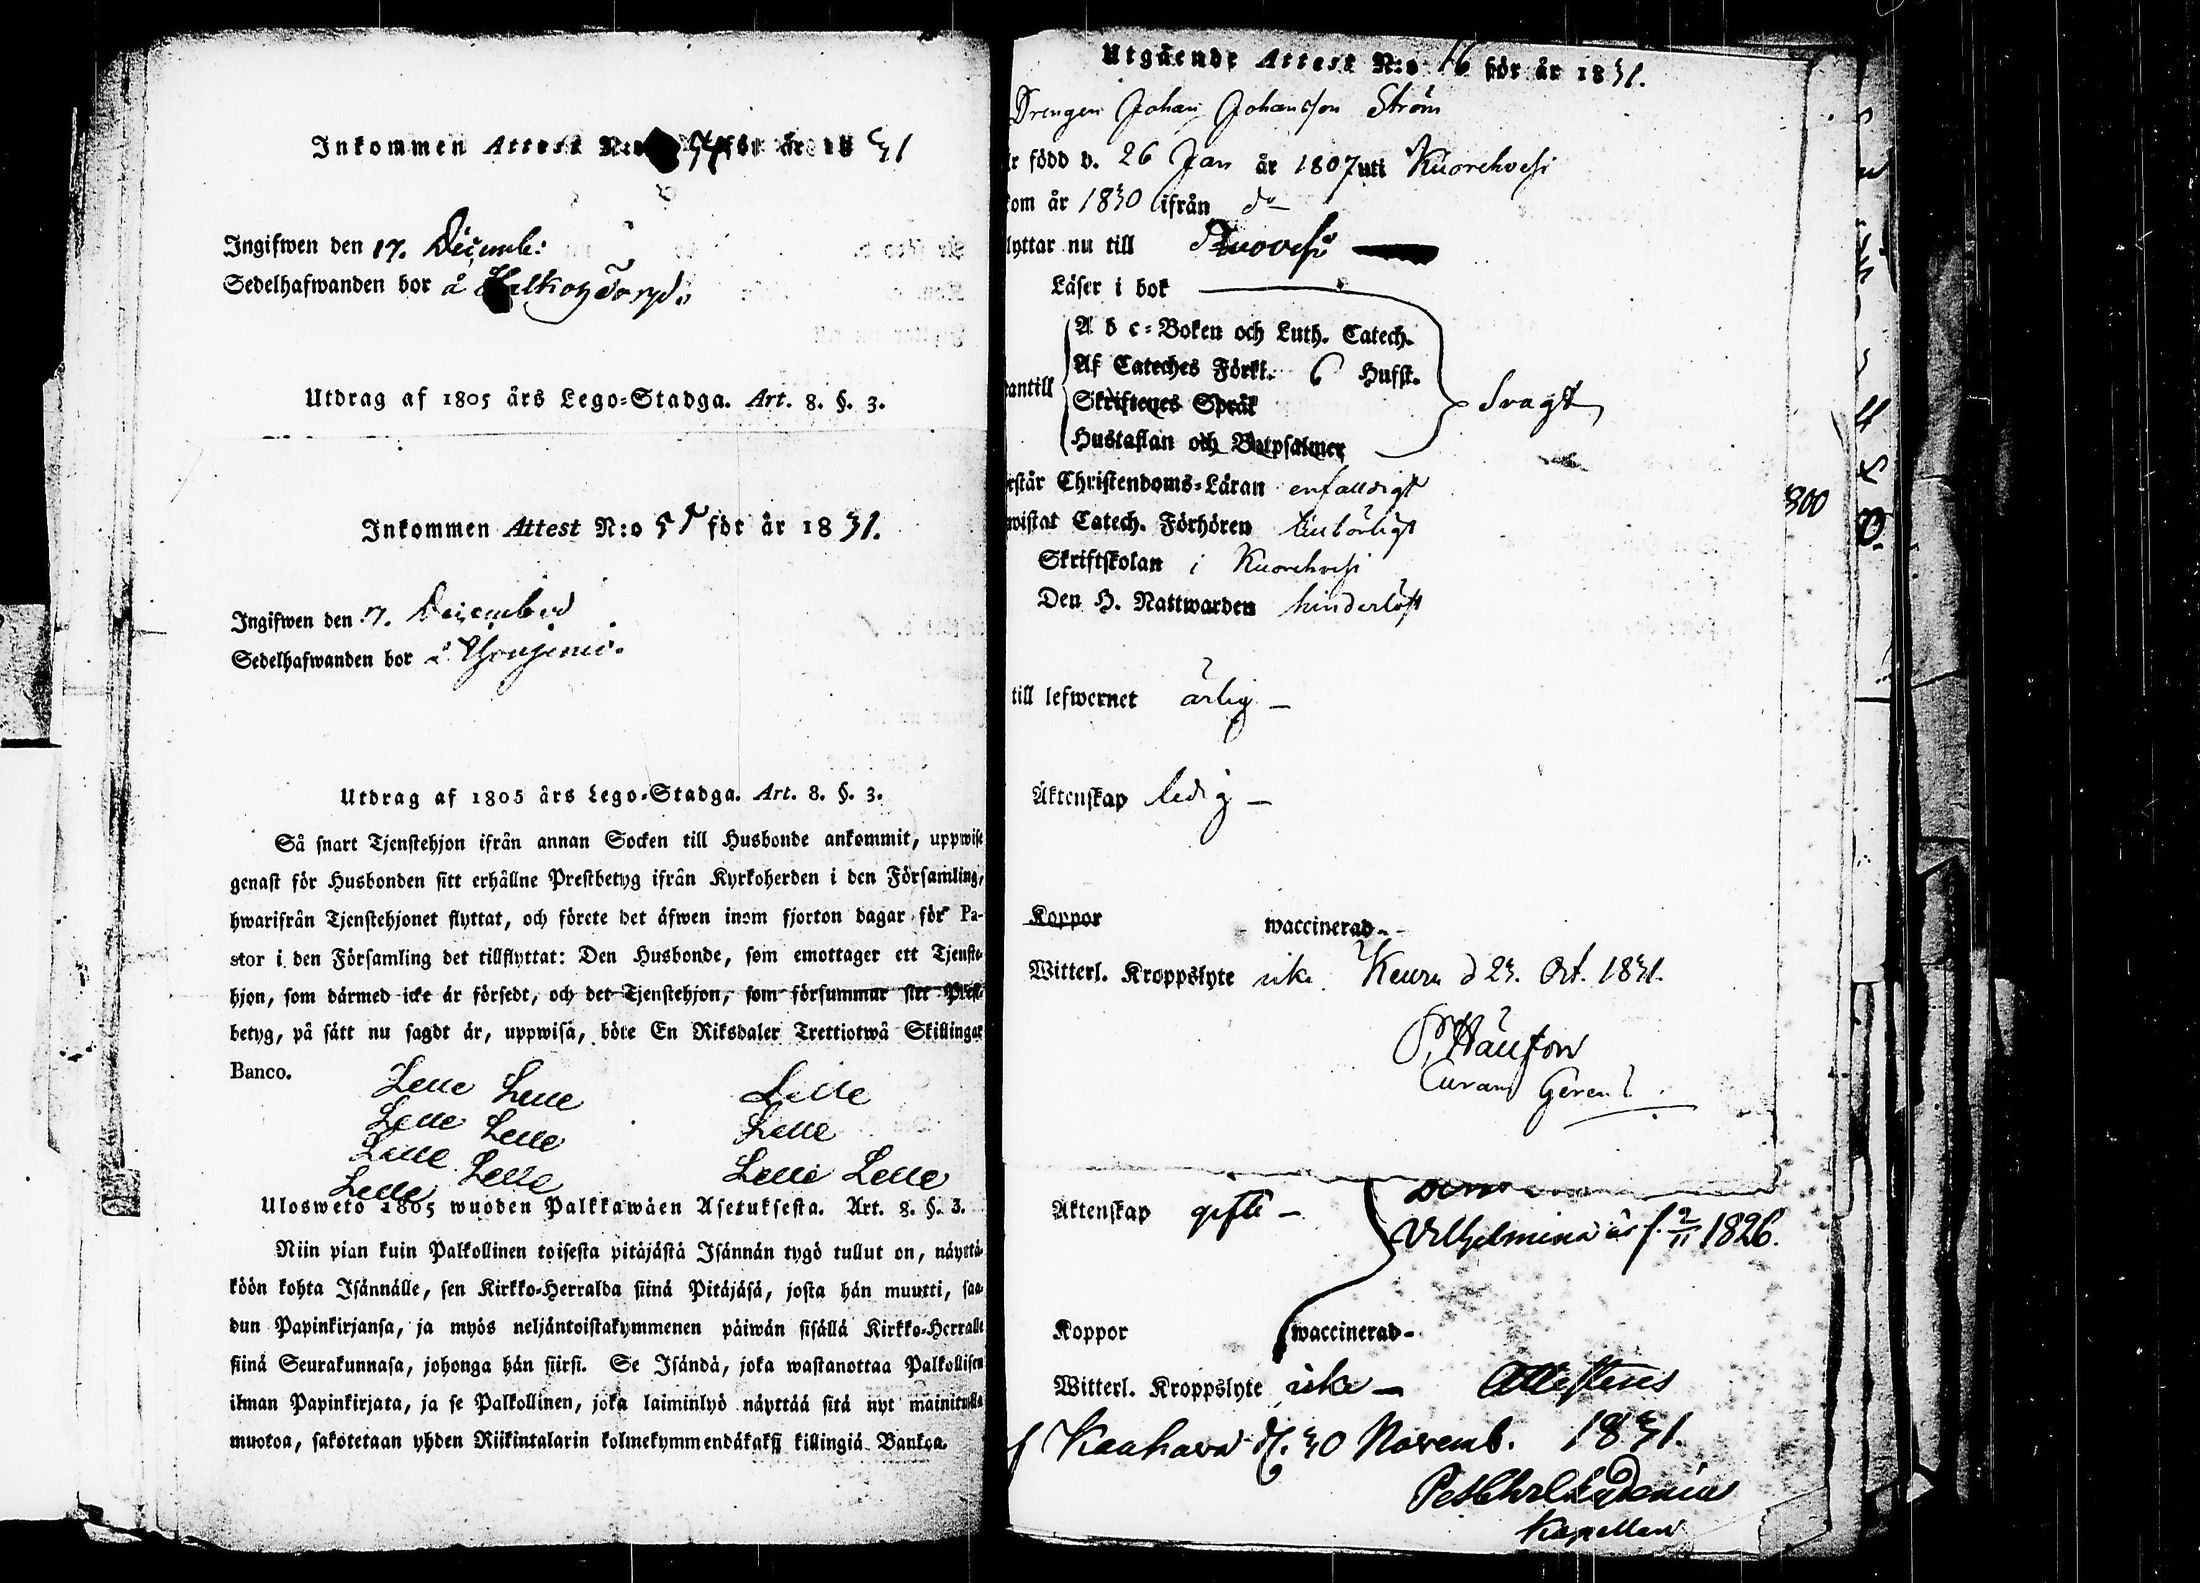 Inkommen Attest N:o för år 18 31
Ingifwen den 17. Decemb:
Sedelhafwanden bor å
Utdrag af 1805 års Lego-Stadga. Art. 8. §. 3.
Inkommen Attest N:o 55 för år 1831.
Ingifwen den 17. December
Sedelhafwanden bor å
Utdrag af 1805 års Lego-Stadga. Art. 8. §. 3.
Så snart Tjenstehjon ifrån annan Socken till Husbonde ankommit, uppwise
genast för Husbonden sitt erhållne Prestbetyg ifrån Kyrkoherden i den Församling,
hwarifrån Tjenstehjonet flyttat, och förete det äfwen inom fjorton dagar för Pa-
stor i den Församling det tillflyttat: Den Husbonde, som emottager ett Tjenste-
hjon, som därmed icke är försedt, och det Tjenstehjon, som försummar sitt Prest-
betyg, på sätt nu sagdt är, uppwisa, böte En Riksdaler Trettiotwå Skillingar
Banco.
Lelle Lelle Lelle
Lelle Lelle Lelle
Lelle Lelle Lelle Lelle
Lelle
Ulosweto 1805 wuoden Palkkawäen Asetuksesta. Art. 8. §. 3.
Niin pian kuin Palkollinen toisesta pitäjästä Isännän tygö tullut on, näyttä-
köön kohta Isännälle, sen Kirkko-Herralda siinä Pitäjäsä, josta hän muutti, saa-
dun Papinkirjansa, ja myös neljäntoistakymmenen päiwän sisällä Kirkko-Herralle
siinä Seurakunnasa, johonga hän siirsi. Se Isändä, joka wastanottaa Palkollisen
ilman Papinkirjata, ja se Palkollinen, joka laiminlyö näyttää sitä nyt mainitulla
muotoa, sakotetaan yhden Riikintalarin kolmekymmendäkaksi killingiä Bankoa.
Utgående Attest N:o 16 för år 1831.
Drengen Johan Johansson Ström
är född d. 26 Jan år 1807 uti Kuorehvesi
kom år 1830 ifrån do
lyttar nu till Ruovesi
Läser i bok
A b c-Boken och Luth. Catech.
Af Cateches Förkl. 6 Hufst.
antill Skriftenes Språk svagt
Hustaflan och Botpsalmer
rstår Christendoms-Läran enfaldigt
wistat Catech. Förhören
Skriftskolan i Kuorehvesi
Den H. Nattwarden hinderlöst
300
till lefwernet ärlig —
Äktenskap ledig —
Koppor waccinerad-
Witterl. Kroppslyte icke. Keuru d 23. Oct. 1831.
Curam Gerens
Äktenskap gifte —
Vilhelmina är f. 9/11 1826.
Koppor waccinerad-
Witterl. Kroppslyte icke — Attesteras
d. 30 Novemb. 1831.
Kapellan